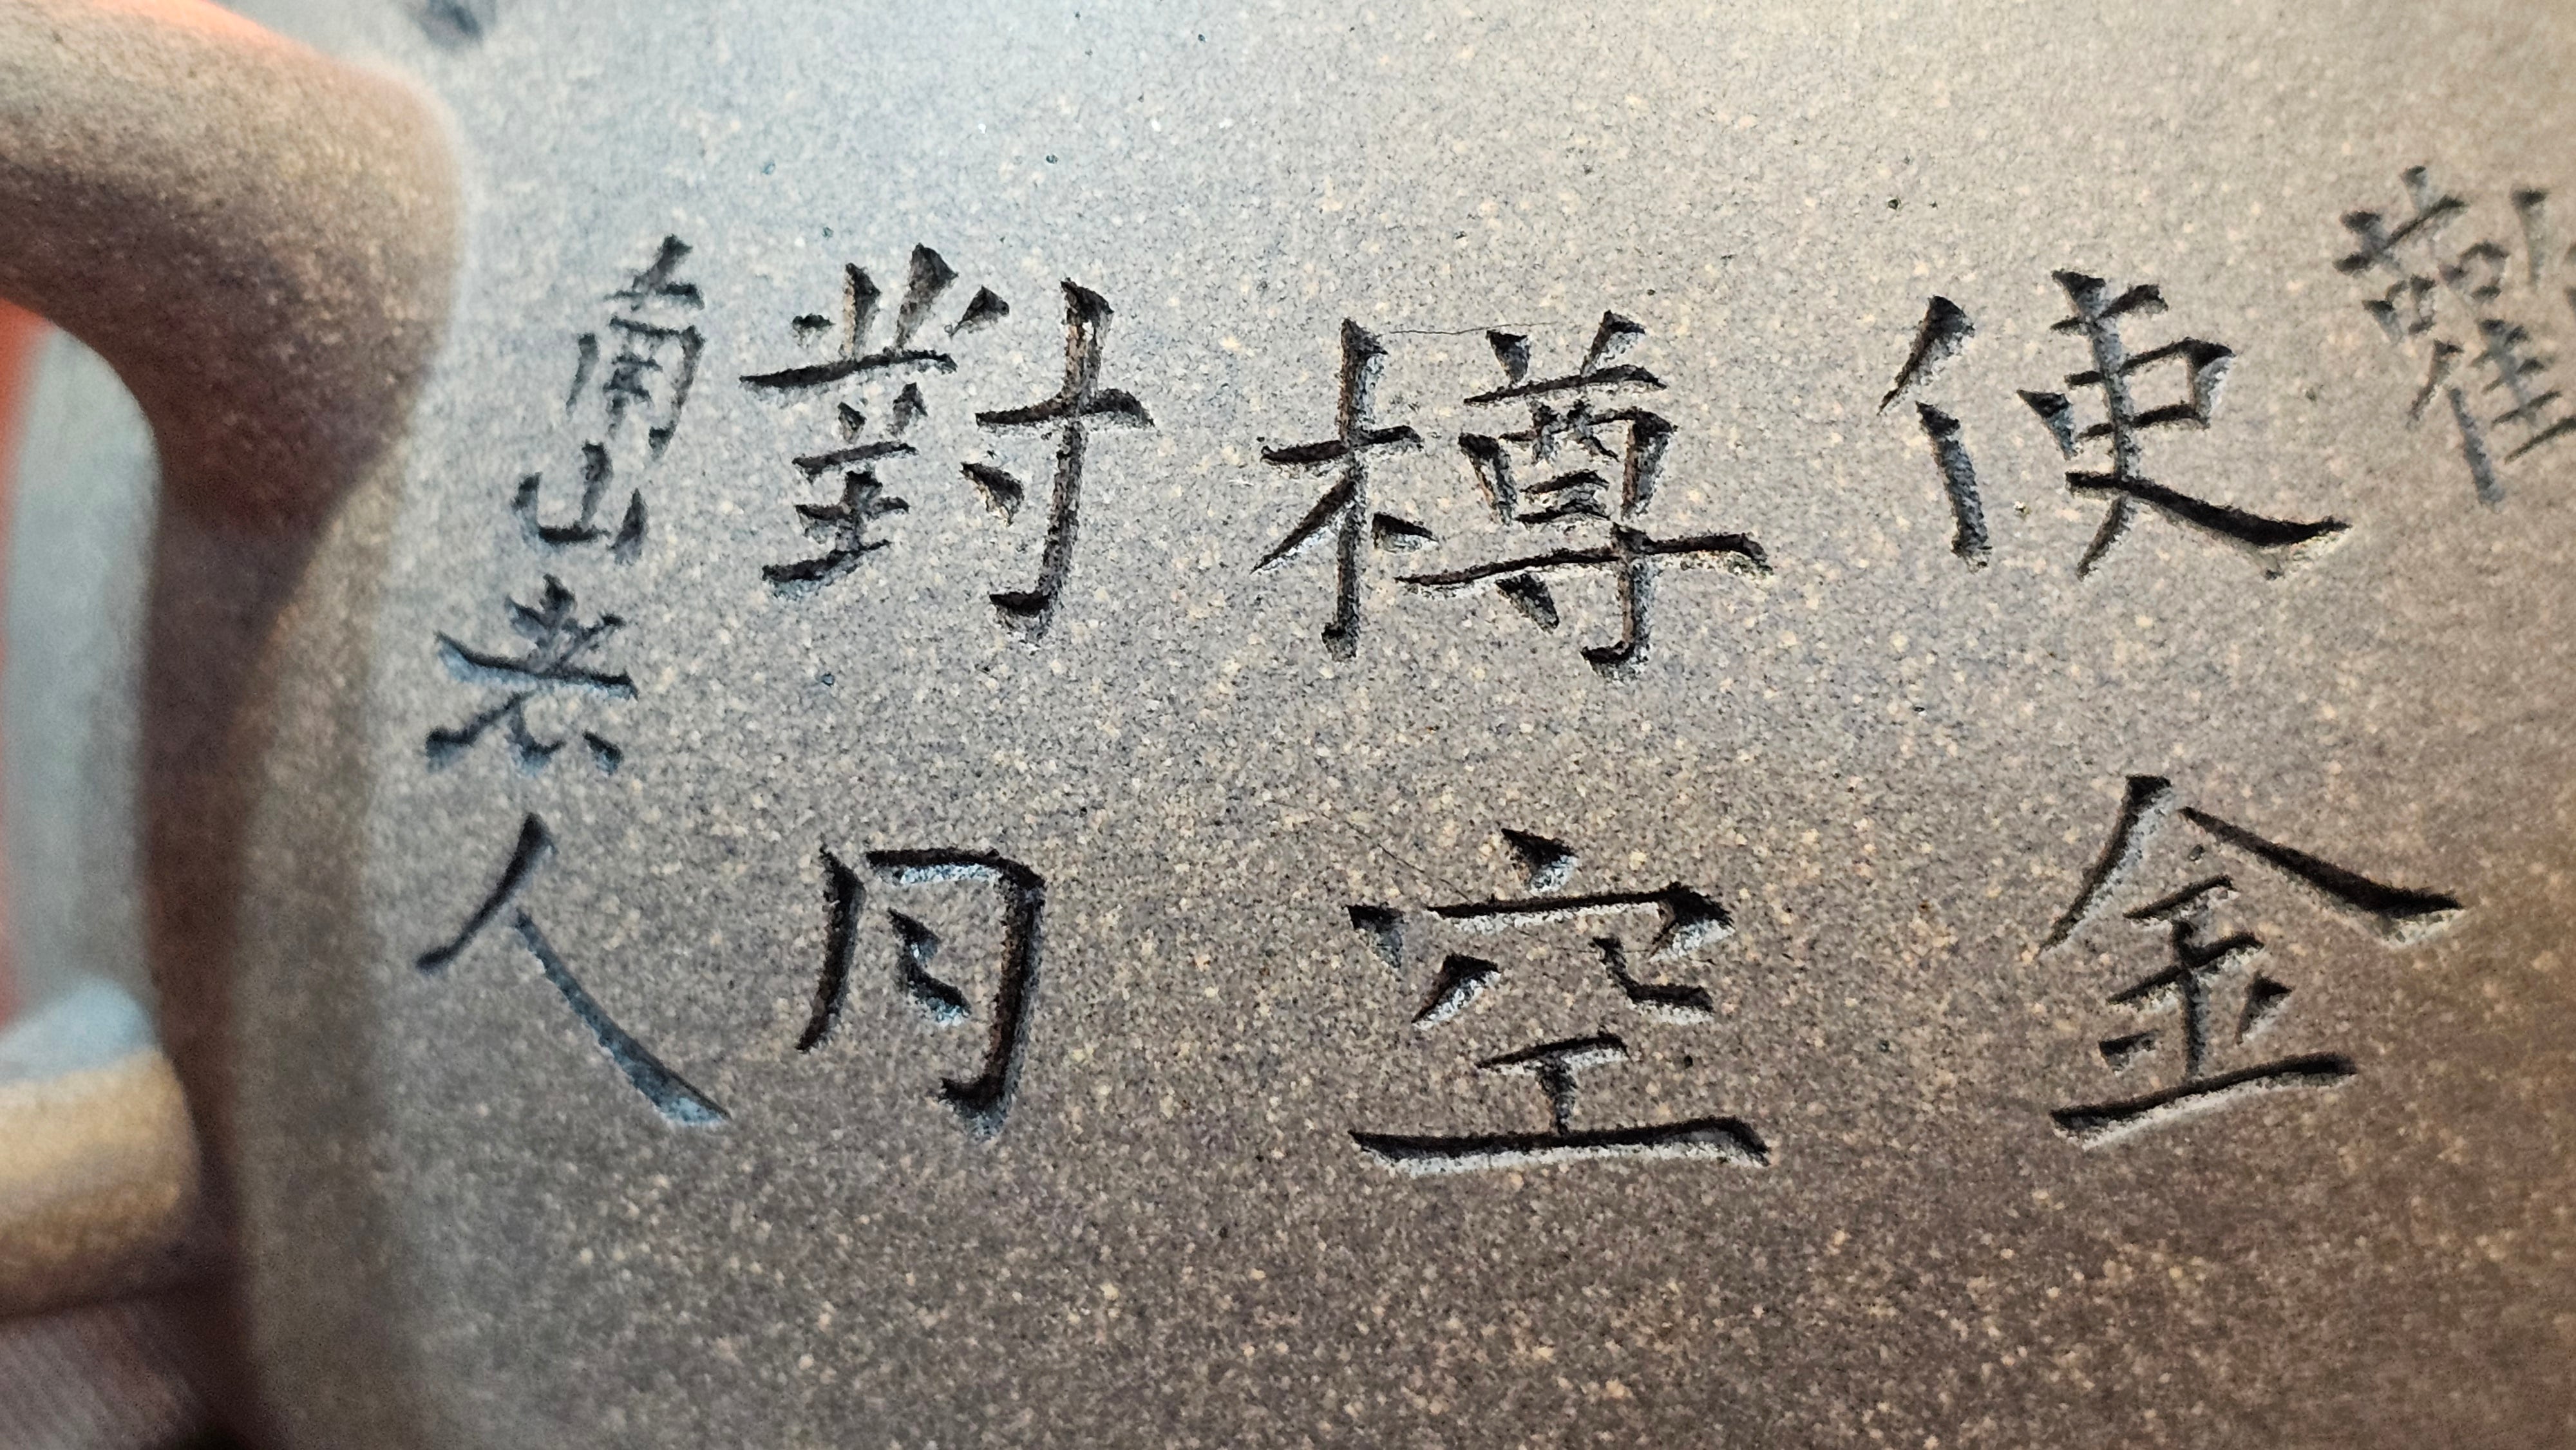 使金
樽空
對月
南山老人